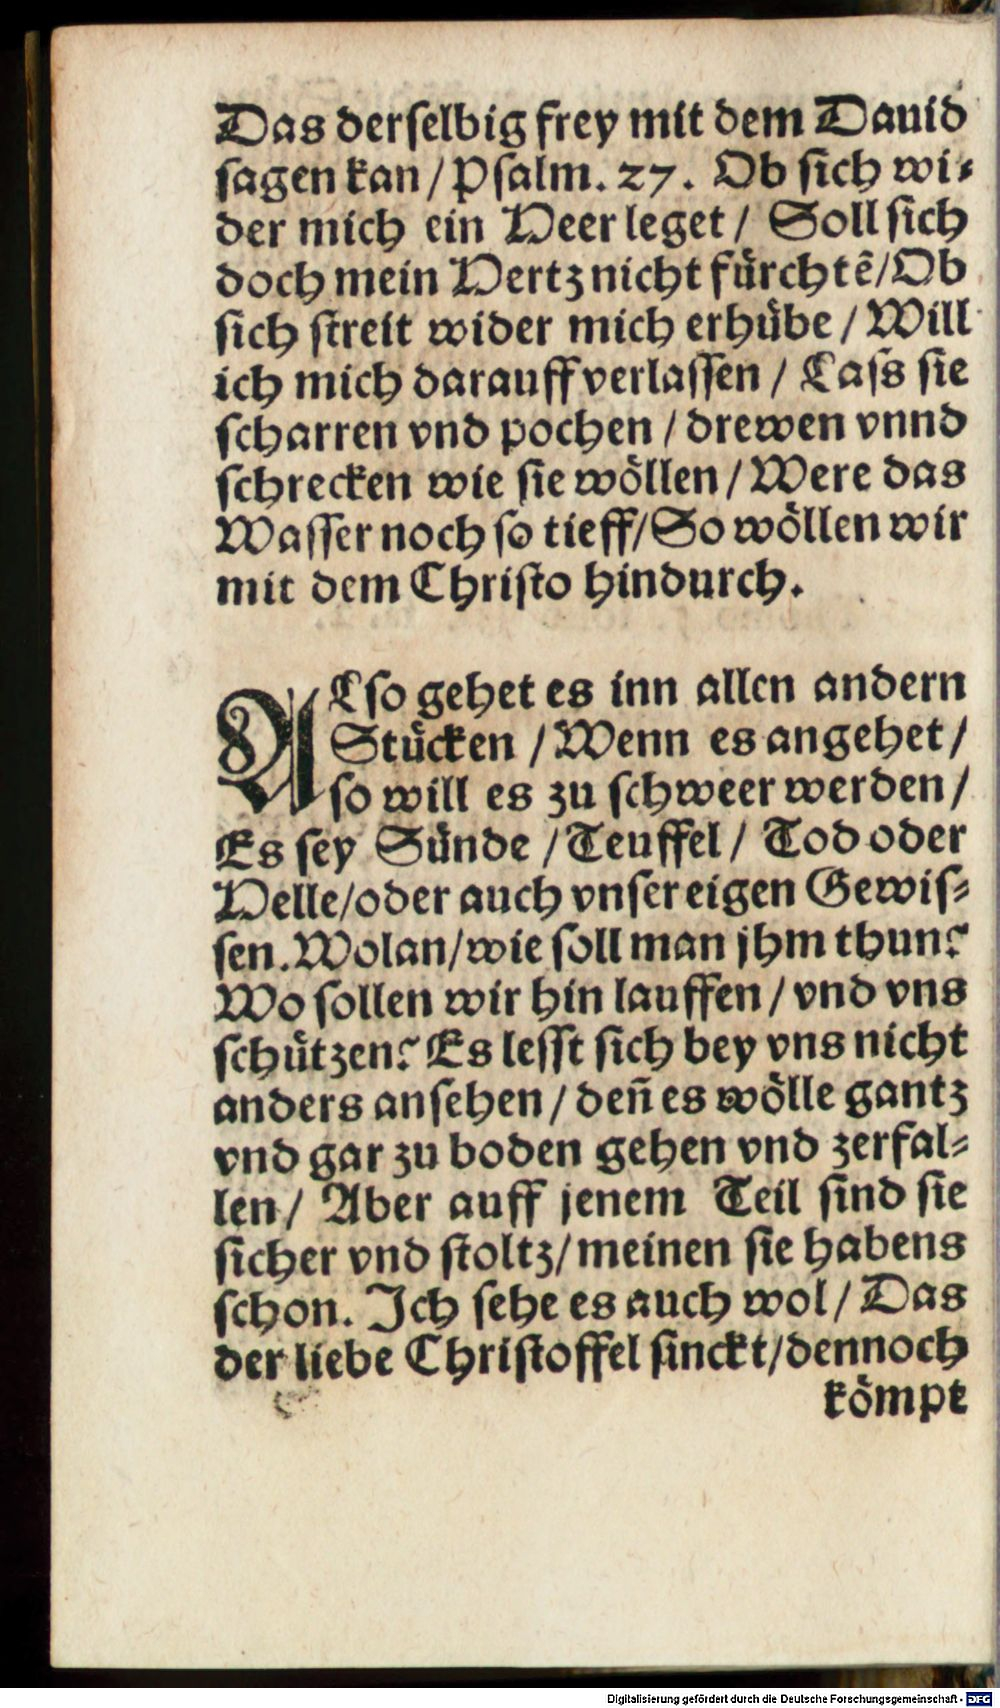 Das derſelbig frey mit dem Dauid
ſagen kan / Pſalm. 27. Ob ſich wi⸗
der mich ein Heer leget / Soll ſich
doch mein Hertz nicht fürchtẽ/Ob
ſich ſtreit wider mich erhübe / Will
ich mich darauff verlaſſen / Laſs ſie
ſcharren vnd pochen / drewen vnnd
ſchrecken wie ſie wöllen / Were das
Waſſer noch ſo tieff/So wöllen wir
mit dem Chriſto hindurch.
ALſo gehet es inn allen andern
Stücken / Wenn es angehet /
ſo will es zu ſchweer werden /
Es ſey Sünde / Teuffel / Tod oder
Helle/oder auch vnſer eigen Gewiſ⸗
ſen. Wolan/wie ſoll man jhm thun?
Wo ſollen wir hin lauffen / vnd vns
ſchützen? Es leſſt ſich bey vns nicht
anders anſehen / deñ es wölle gantz
vnd gar zu boden gehen vnd zerfal⸗
len / Aber auff jenem Teil ſind ſie
ſicher vnd ſtoltz/meinen ſie habens
ſchon. Ich ſehe es auch wol / Das
der liebe Chriſtoffel ſinckt/dennoch
kömpt
Digitalisierung gefördert durch die Deutsche Forschungsgemeinschaft - DFG